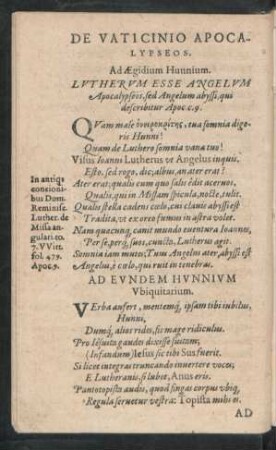 DE VATICINIO APOCA-
LYPSEOS.
Ad Ægidium Hunnium.
LVTHERVM ESSE ANGELVM
Apocalypseos, sed Angelum abyssi, qui
describitur Apoc c. 9.
QVam male ὀνειροκρίτης, tua somnia dige-
ris Hunni!
Quam de Luthero somnia vana tuo!
Visus Ioanni Lutherus ut Angelus inquis.
Esto. sed rogo, dic; albus, an ater erat?
Ater erat; qualis cum quo salis edit acervos,
Qualis, qui in Missam spicula, nocte, tulit.
Qualis stella cadens cœlo, cui clavis abyssi est
Tradita, ut ex orco fumus in astra volet.
Nam quæcunq; canit mundo ventura Ioannes,
Per se, perq; suos, cuncta, Lutherus agit.
Somnia iam muto; Tuus Angelus ater, abyssi est
Angelus, è cœlo, qui ruit in tenebras.
In antiq;
concioni-
bus Dom.
Reminisc.
Luther. de
Missa an-
gulari to.
7. VVit.
fol. 479.
Apoc. 9.
AD EVNDEM HVNNIVM
Vbiquitarium.
VErba aufert, mentemq; ipsam tibi iubilus,
Hunni,
Dumq; alios rides, fis mage ridiculus.
Pro Iesuita gaudes dixisse suitam;
(Infandum) Iesus sic tibi Sus fuerit.
Si licet integras truncando invertere voces;
E Lutheranis si lubet, Anus eris.
Pantotopista audis, quod fingas corpus ubiq;
Regula servetur vestra: Topista mihi es.
AD